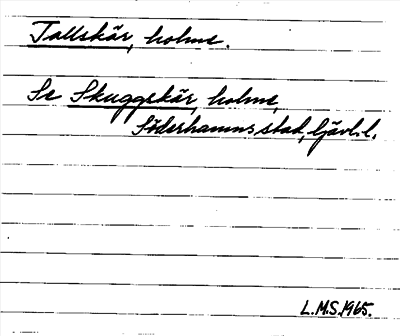 Tallskär, holme.
Se Skuggskär, holme,
Söderhamns stad, Gävl. l.
L.M.S. 1965.